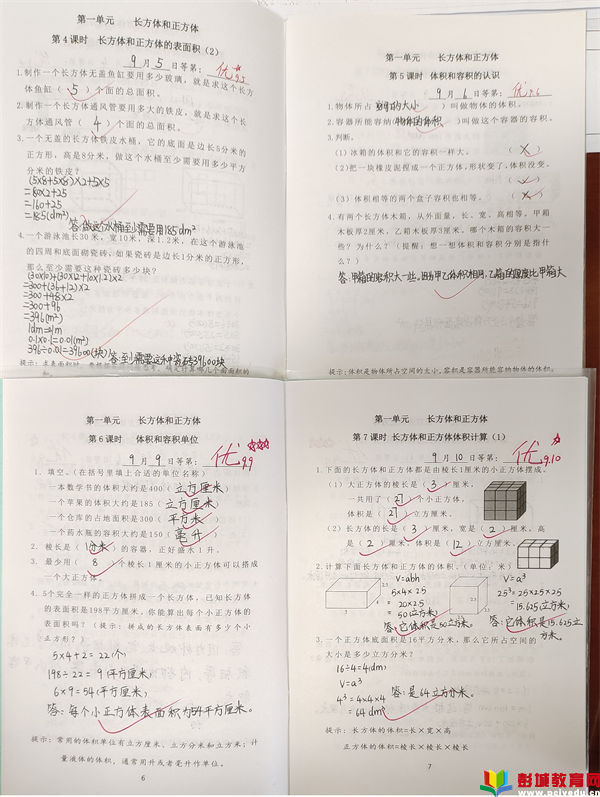 第一单元 长方体和正方体
第4课时 长方体和正方体的表面积（2）
9月5日等第：优 9.5
1.制作一个长方体无盖鱼缸要用多少玻璃，就是求这个长方
体鱼缸（5）个面的总面积。
2.制作一个长方体通风管要用多大的铁皮，就是求这个长
方体通风管（4）个面的总面积。
3.一个无盖的长方体铁皮水桶，它的底面是边长5分米的
正方形，高是8分米，做这个水桶至少需要用多少平方
分米的铁皮？
(5×8+5×8)×2+5×5
=80×2+25
=160+25
=185(dm²)
答:做这个水桶至少需要用185dm²
4.一个游泳池长30米，宽10米，深1.2米，在这个游泳池
的四周和底面糊瓷砖，如果瓷砖是边长1分米的正方形，
那么至少需要这种瓷砖多少块？
(30×10)+(30×1.2+10×1.2)×2
=300+(36+12)×2
=300+48×2
=300+96
=396(m²)
0.1×0.1=0.01(m²)
396÷0.01=39600(块)
第一单元 长方体和正方体
第5课时 体积和容积的认识
9月6日等第：优 9.6
1.物体所占（空间的大小）叫做物体的体积。
2.容器所能容纳（物体的体积）叫做这个容器的容积。
3.判断。
（1）冰箱的体积和它的容积一样大。（×）
（2）把一块橡皮泥捏成一个正方体，形状变了，体积没变。
（3）体积相等的两个盒子容积也相等。（×）
4.有两个长方体木箱，从外面量，长、宽、高相等，甲箱
木板厚2厘米，乙箱木板厚3厘米，哪个木箱的容积大一
些？为什么？（提醒：想一想体积和容积分别是指什
么？）
提示：体积是物体所占空间的大小，容积是容器所能容纳物体的体积。
第一单元 长方体和正方体
第6课时 体积和容积单位
9月9日等第：优 9.9
1. 填空。（在括号里填上合适的单位名称）
一本数学书的体积大约是400（立方厘米）
一个苹果的体积大约是185（立方厘米）
一个仓库的占地面积是300（平方米）
一个药水瓶的容积大约是150（毫升）
2. 棱长是（1分米）的容器，正好盛水1升。
3. 最少用（8）个棱长1厘米的小正方体可以搭成
一个大正方体。
4. 5个完全一样的正方体拼成一个长方体，已知长方体
的表面积是198平方厘米，你能算出每个小正方体的
表面积吗？（提示：拼成的长方体表面有多少个小
正方形？）
5×4+2=22(个)
198÷22=9(平方厘米)
6×9=54(平方厘米)
答:每个小正方体表面积为54平方厘米。
提示：常用的体积单位有立方厘米、立方分米和立方米；计
量液体的体积，通常用升或者毫升作单位。
6
第一单元 长方体和正方体
第7课时 长方体和正方体体积计算（1）
9月10日等第：优 9.10
1.下面的长方体和正方体都是由棱长1厘米的小正方体摆成。
（1）大正方体的棱长是（3）厘米，
一共用了（27）个小正方体，
体积是（27）立方厘米。
（2）长方体的长是（3）厘米，宽是（2）厘米，高
是（2）厘米，体积是（12）立方厘米。
2.计算下面长方体和正方体的体积。（单位：米）
V=abh
5×4×2.5
=20×2.5
=50(立方米)
答:它体积是50立方米。
V=a³
2.5³=2.5×2.5×2.5
=15.625(立方米)
答:它体积是15.625立
方米。
3.一个正方体底面积是16平方分米，那么它所占空间的
大小是多少立方分米？
16÷4=4(dm)
V=a³
4³=4×4×4
=64dm³
答:是64立方分米。
提示：长方体的体积=长×宽×高
正方体的体积=棱长×棱长×棱长
7
彭城教育网
www.pcjyedu.cn